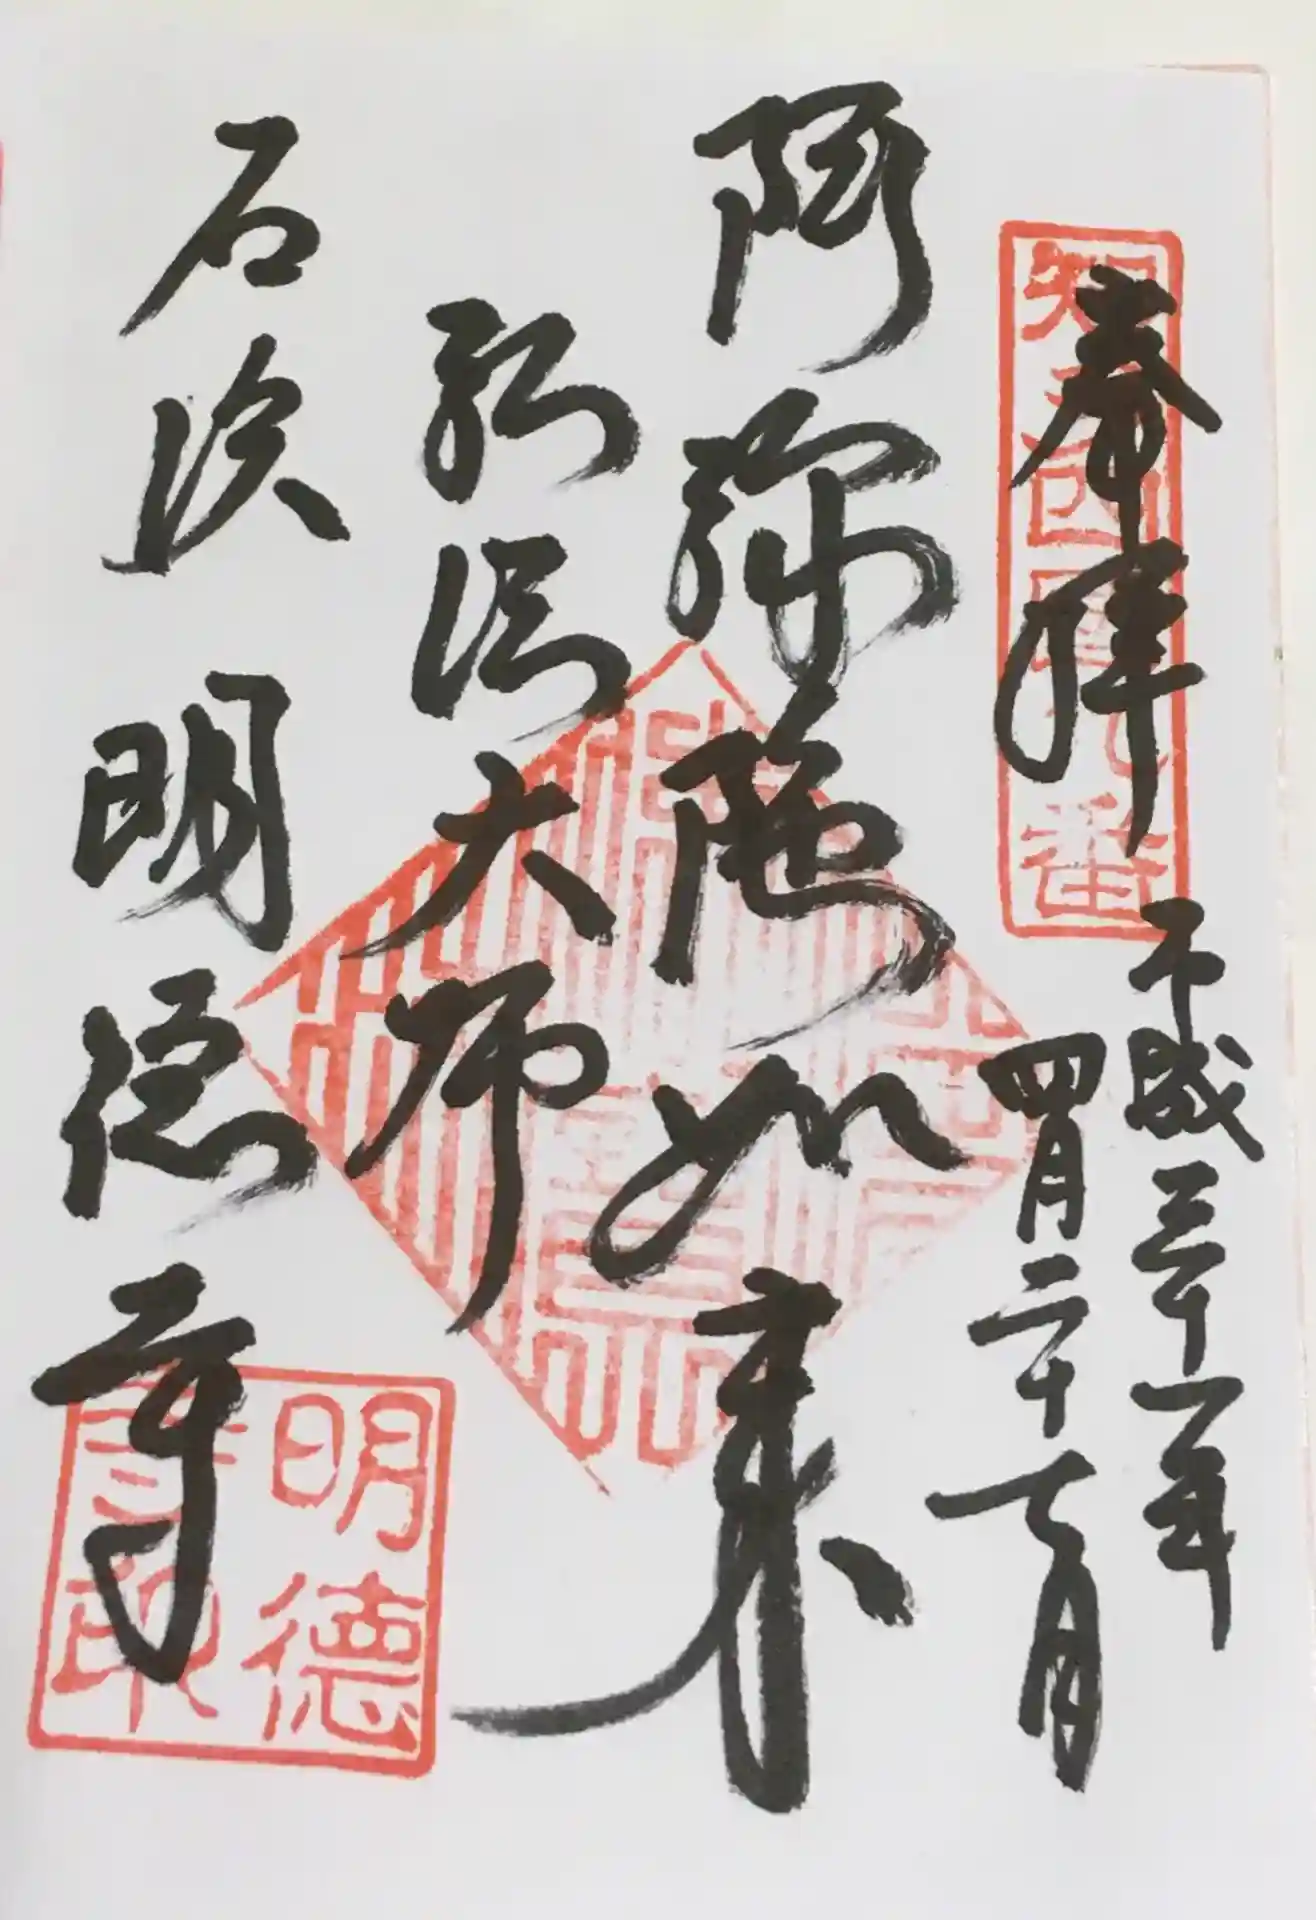 知多四国九番
奉拝
平成三十一年
四月二十七日
阿弥陀如来
弘法大師
石浜 明徳寺
明徳寺印